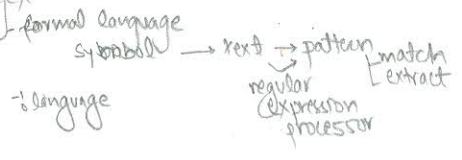 - formal language
symbol → text → pattern [match
extract
regular
expression
processor
-: language